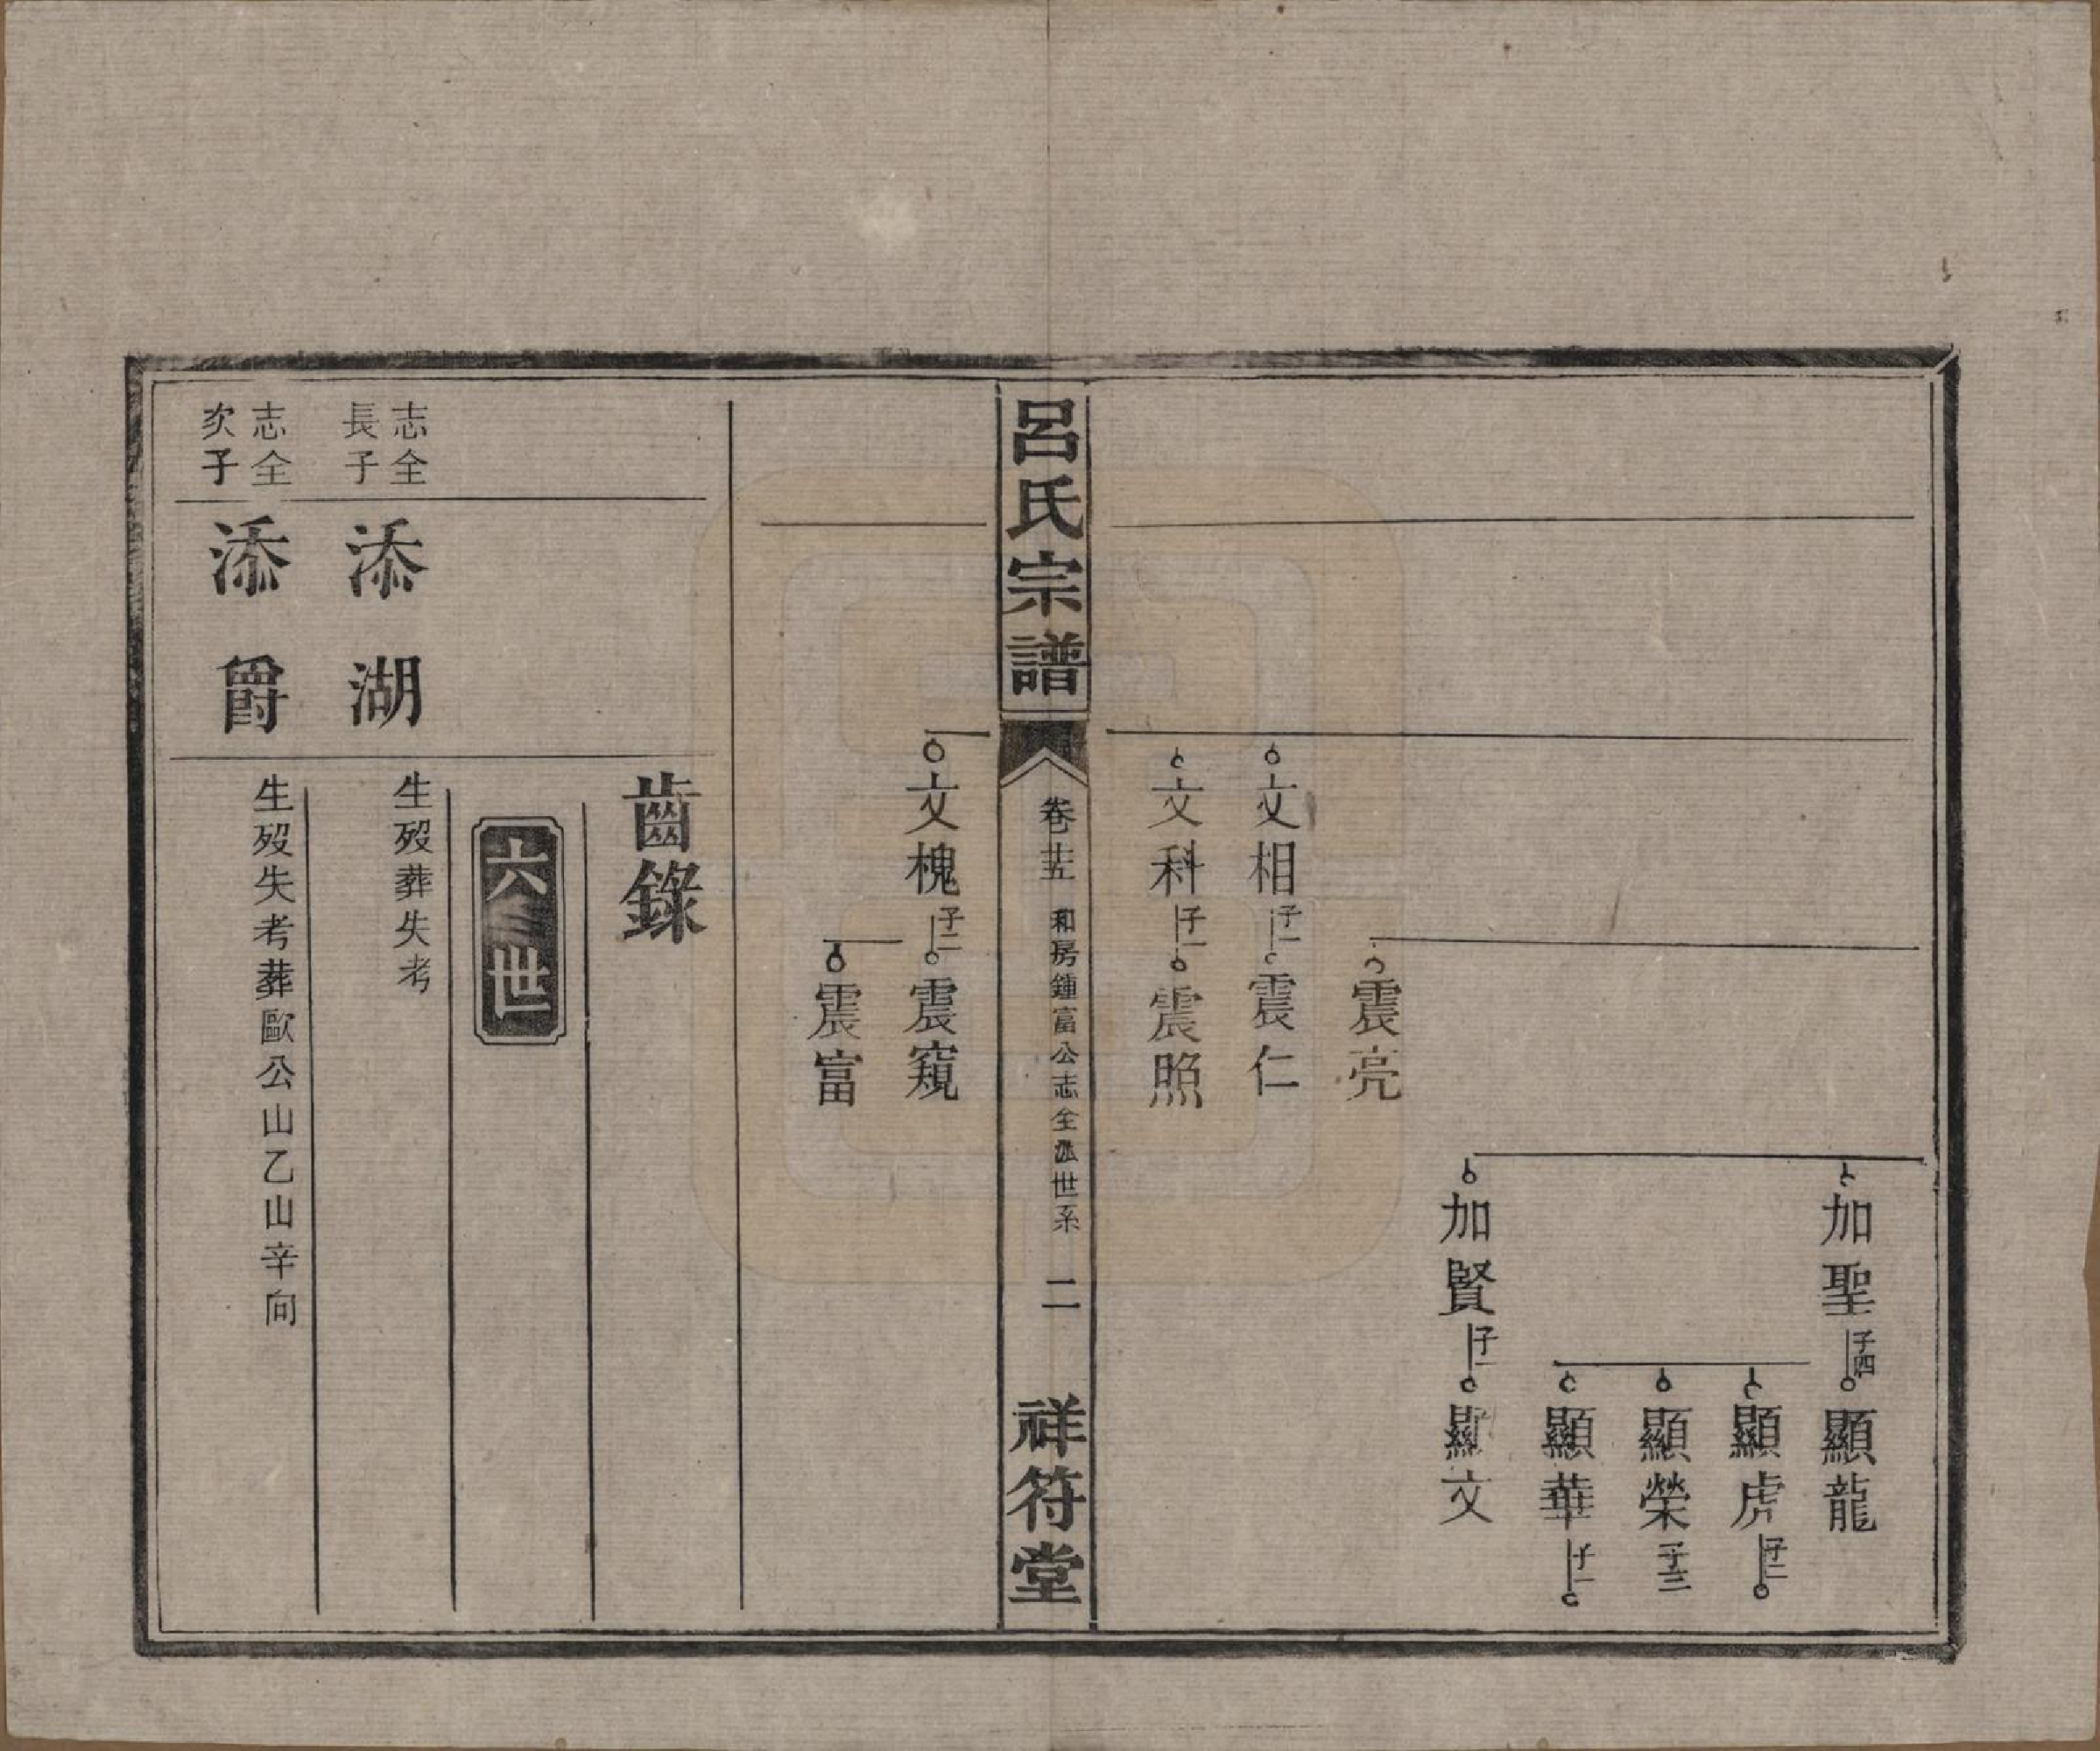 加聖 子四 顯龍
顯虎 子二
顯榮 子三
顯華 子一
加賢 子一 顯文
震亮
文相 子一 震仁
文科 子一 震照
呂氏宗譜
卷廿五
和房鍾富公志全派世系
二
祥符堂
文槐 子二 震窺
震富
齒錄
六世
志全
長子
添湖
生歿葬失考
志全
次子
添爵
生歿失考葬歐公山乙山辛向